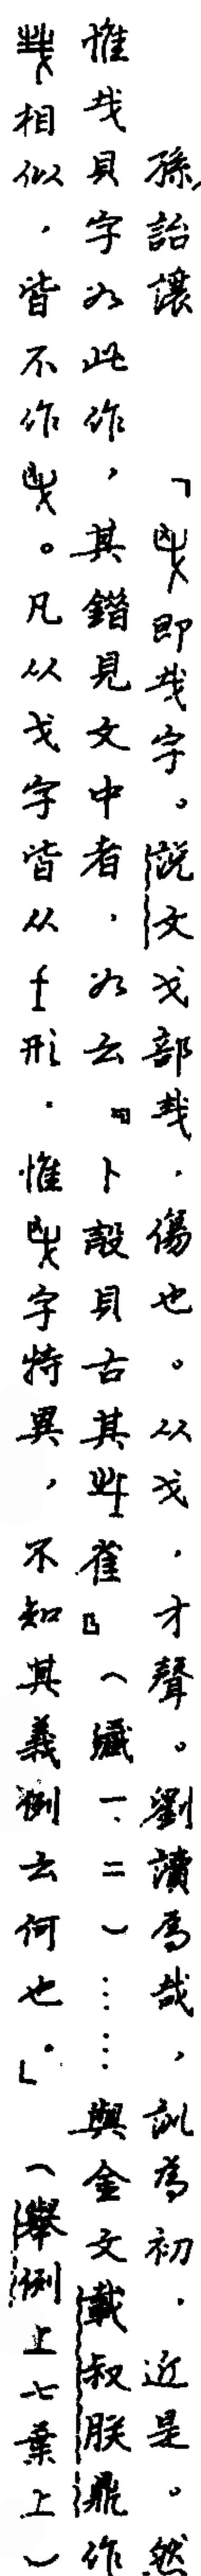 孫詒讓 「即𢦏字。說文戈部𢦏，傷也。从戈，才聲。劉讀為哉，訓為初，近是。然
惟𢦏貝字如此作，其錯見文中者，如云『卜㱿貝古其雀』（藏一、二）……與金文載叔朕鼎作
相似，皆不作。凡从戈字皆从形，惟字特異，不知其義例云何也。」（舉例上七葉上）